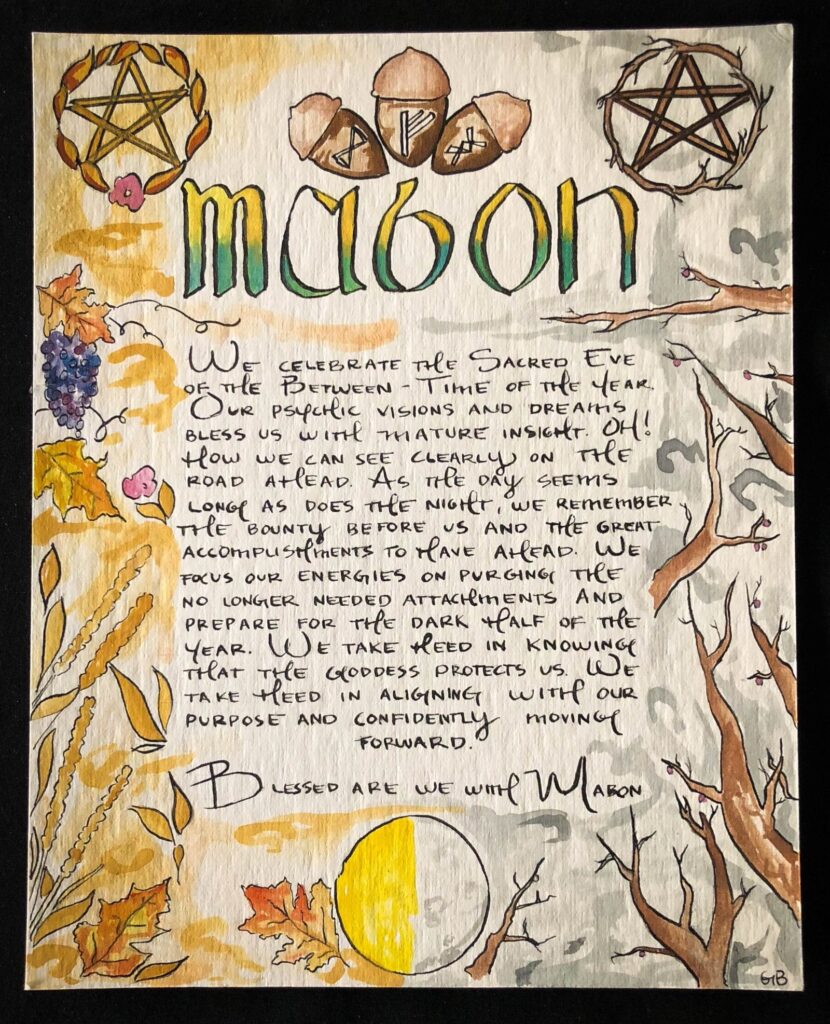 mabon
We celebrate the Sacred Eve
of the Between-Time of the year.
Our psychic visions and dreams
bless us with mature insight. Oh!
How we can see clearly on the
road ahead. As the day seems
long as does the night, we remember
the bounty before us and the great
accomplishments to have ahead. We
focus our energies on purging the
no longer needed attachments and
prepare for the dark half of the
year. We take heed in knowing
that the Goddess protects us. We
take heed in aligning with our
purpose and confidently moving
forward.
Blessed are we with Mabon
GB